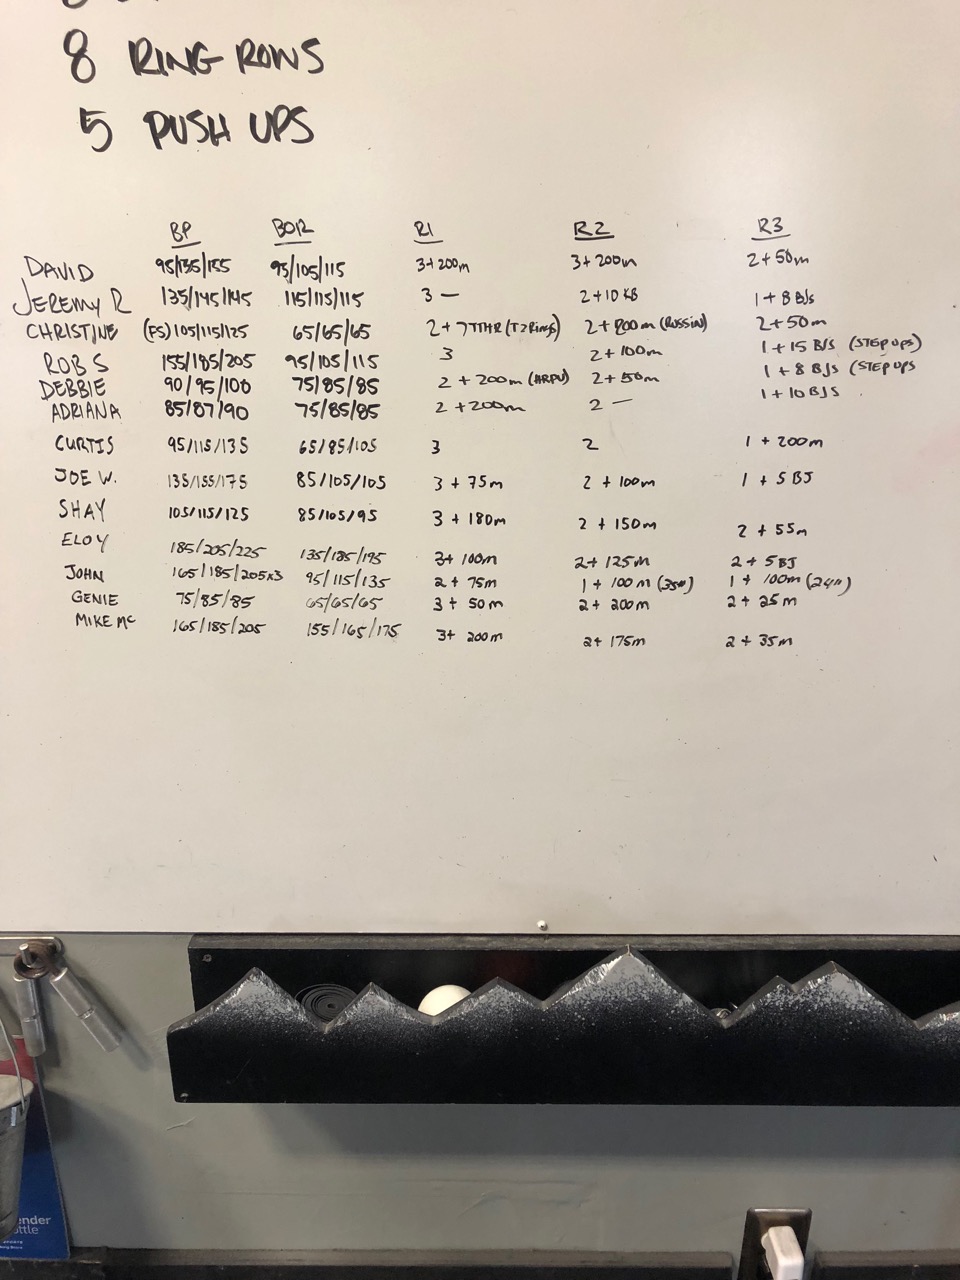 8 RING ROWS
5 PUSH UPS
BP BOR R1 R2 R3
DAVID 95/135/155 95/105/115 3+200m 3+200m 2+50m
JEREMY R 135/145/145 115/115/115 3 — 2+10 KB 1+8 BJs
CHRISTINE (FS) 105/115/125 65/65/65 2+7TTHR (T2Rings) 2+200m (RUSSIAN) 2+50m
ROB S 155/185/205 95/105/115 3 2+100m 1+15 BJS (STEP UPS)
DEBBIE 90/95/100 75/85/85 2+200m (HRPU) 2+50m 1+8 BJS (STEP UPS
ADRIANA 85/87/90 75/85/85 2+200m 2 — 1+10 BJS
CURTIS 95/115/135 65/85/105 3 2 1+200m
JOE W. 135/155/175 85/105/105 3 + 75m 2 + 100m 1 + 5 BJ
SHAY 105/115/125 85/105/95 3 + 180m 2 + 150m 2 + 55m
ELOY 185/205/225 135/185/195 3+ 100m 2+ 125m 2+5 BJ
JOHN 165/185/205x3 95/115/135 2 + 75m 1 + 100m (35#) 1 + 100m (24")
GENIE 75/85/85 65/65/65 3 + 50m 2+ 200m 2 + 25m
MIKE Mc 165/185/205 155/165/175 3+ 200m 2+ 175m 2 + 35m